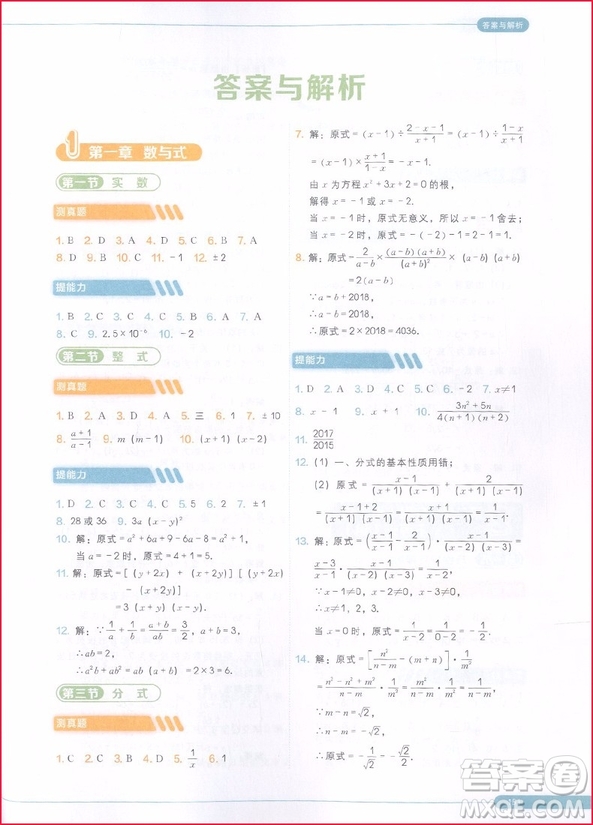 答案与解析
答案与解析
1 第一章 数与式
第一节 实数
测真题
1. B 2. D 3. A 4. D 5. B 6. B 7. A
8. D 9. B 10. C 11. -1 12. ±2
提能力
1. B 2. C 3. A 4. C 5. C 6. C 7. C
8. C 9. 2.5×10⁻⁶ 10. -2
第二节 整式
测真题
1. C 2. D 3. D 4. A 5. 三 6. 1 7. ±10
8. (a+1)/(a-1) 9. m (m-1) 10. (x+1) (x-2)
提能力
1. D 2. D 3. B 4. D 5. C 6. D 7. ±1
8. 28 或 36 9. 3a (x-y)²
10. 解：原式=a²+6a+9-6a-8=a²+1,
当 a=-2时，原式=4+1=5.
11. 解：原式=[ (y+2x) + (x+2y)] [ (y+2x)
- (x+2y)]
=3 (x+y) (x-y).
12. 解：∵1/a+1/b=(a+b)/ab=3/2, a+b=3,
∴ab=2,
∴a²b+ab²=ab (a+b) =2×3=6.
第三节 分式
测真题
1. C 2. C 3. B 4. D 5. 1/x 6. 6 1
7. 解：原式= (x-1) ÷(2-x-1)/(x+1)= (x-1) ÷(1-x)/(x+1)
= (x-1) ×(x+1)/(1-x)=-x-1.
由 x 为方程 x²+3x+2=0 的根，
解得 x=-1或 x=-2.
当 x=-1时，原式无意义，所以 x=-1舍去；
当 x=-2时，原式=- (-2) -1=2-1=1.
8. 解：原式=2/(a+b)×(a-b)(a+b)/(a+b)²× (a-b) (a+b)
=2 (a-b)
∵a=b+2018,
∴a-b=2018,
∴原式=2×2018=4036.
提能力
1. D 2. A 3. D 4. C 5. C 6. -2 7. x≠1
8. x-1 9. x+1 10. (3n²+5n)/(4(n+1)(n+2))
11. 2017/2015
12. (1) 一、分式的基本性质用错；
(2) 原式=(x-1)/((x+1)(x-1))+2/((x+1)(x-1))=
(x-1+2)/((x+1)(x-1))=(x+1)/((x+1)(x-1))=1/(x-1).
13. 解：原式=(x/(x-1)-1/(x-1))÷((x+1)(x-2))/(x(x-2)-(x-2))=
(x-1)/(x-1)·((x-1)(x-2))/((x-2)(x-3))=1/(x-2),
∵x-1≠0,
∴x≠1, 2.
当 x=0时，原式=1/(0-2)=-1/2.
14. 解：原式=[n²/(n-m)-(m+n)]·1/m²
=(n²-n²+m²)/(n-m)·1/m²=1/(n-m).
∵m-n=√2,
∴n-m=-√2,
∴原式=-1/√2=-√2/2.
答案圈
MXQE.COM